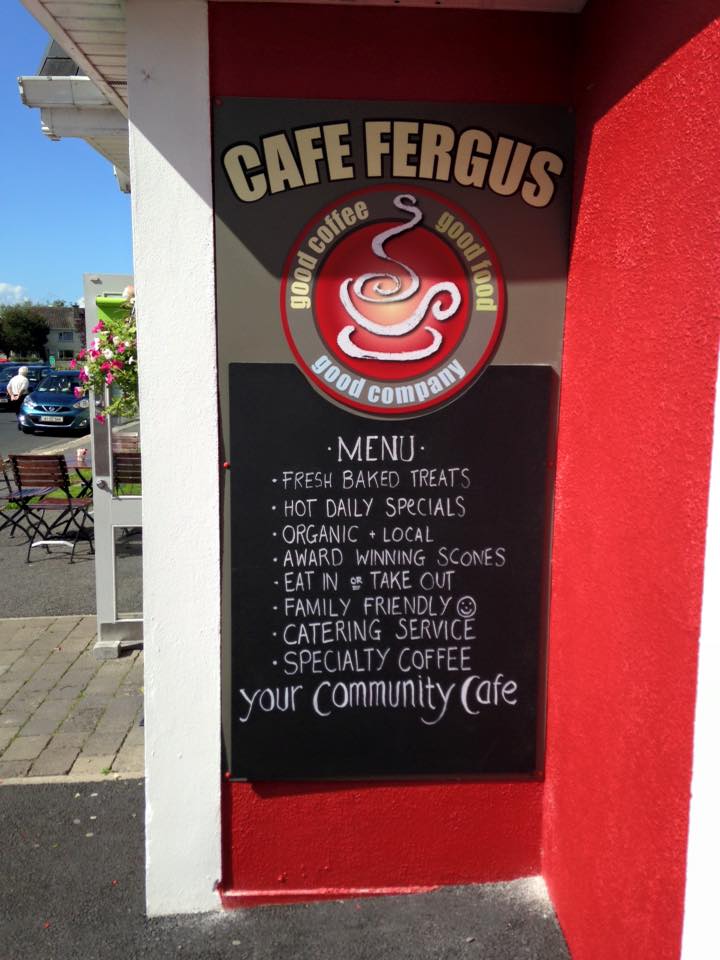 CAFE FERGUS
good coffee
good food
good company
·MENU·
·FRESH BAKED TREATS
·HOT DAILY SPECIALS
·ORGANIC + LOCAL
·AWARD WINNING SCONES
·EAT IN OR TAKE OUT
·FAMILY FRIENDLY☺
·CATERING SERVICE
·SPECIALTY COFFEE
your Community Cafe